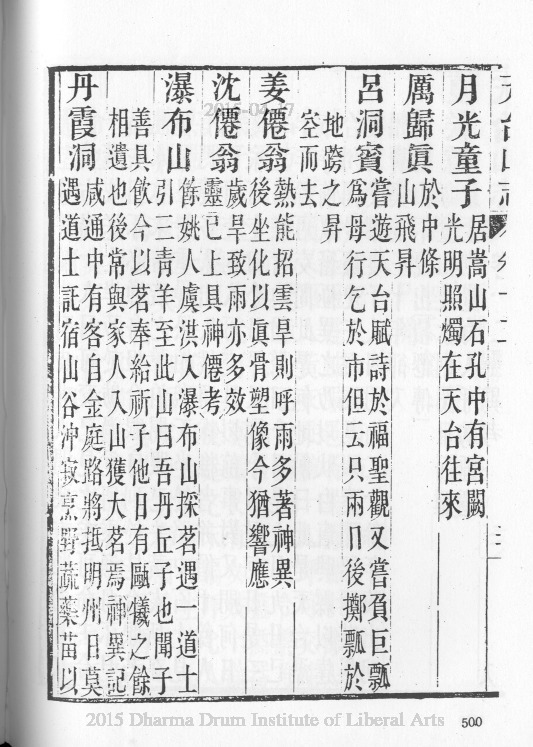 月光童子 居嵩山石孔中有宮闕
光明照燭在天台往來
厲歸眞 於中條
山飛昇
呂洞賓 嘗遊天台賦詩於福聖觀又嘗負巨瓢
爲母行乞於市但云只兩口後擲瓢於
地跨之昇
空而去
姜僊翁 熱能招雲旱則呼雨多著神異
後坐化以眞骨塑像今猶響應
沈僊翁 歲旱致雨亦多效
靈已上具神僊考
瀑布山 餘姚人虞洪入瀑布山採茗遇一道士
引三青羊至此山曰吾丹丘子也聞子
善具飲今以茗奉給祈子他日有甌儀之餘
相遺也後常與家人入山獲大茗焉神異記
丹霞洞 咸通中有客自金庭路將抵明州日莫
遇道士託宿山谷冲寂烹野蔬藥苗以
2015 Dharma Drum Institute of Liberal Arts
500